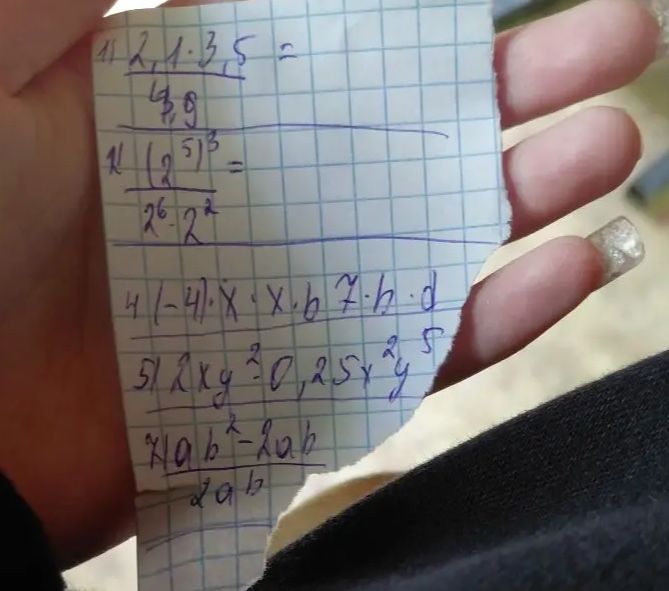 1) 2,1·3,5 =
4,9
2) (2⁵)³ =
2⁶·2²
4 (-4)·x·x·b 7·b·d
5) 2xy²·0,25x²y⁵
7) ab²-2ab
2ab